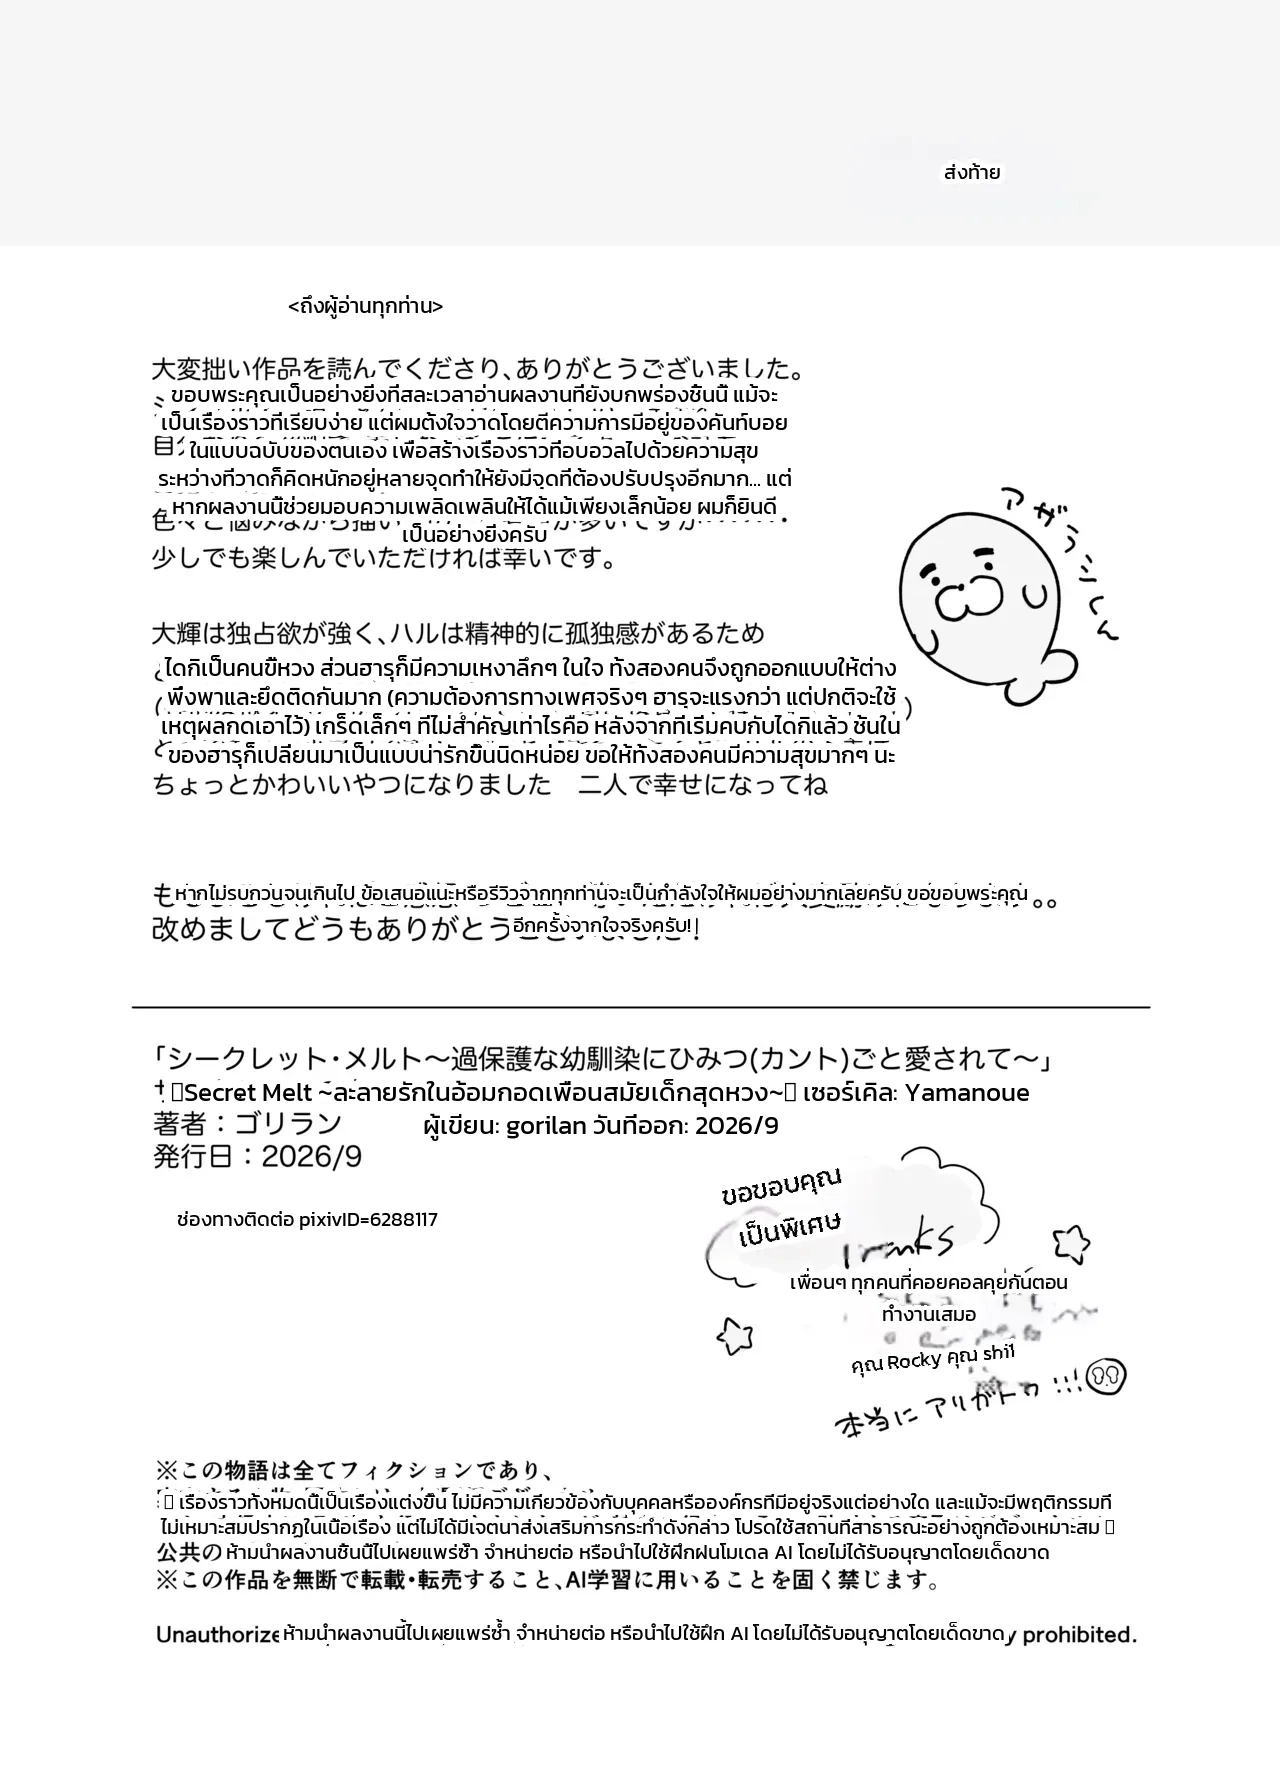 ส่งท้าย
<ถึงผู้อ่านทุกท่าน>
大変拙い作品を読んでくださり、ありがとうございました。
ขอบพระคุณเป็นอย่างยิ่งที่สละเวลาอ่านผลงานที่ยังบกพร่องชิ้นนี้ แม้จะ
เป็นเรื่องราวที่เรียบง่าย แต่ผมตั้งใจวาดโดยตีความการมีอยู่ของคันท์บอย
ในแบบฉบับของตนเอง เพื่อสร้างเรื่องราวที่อบอวลไปด้วยความสุข
ระหว่างที่วาดก็คิดหนักอยู่หลายจุดทำให้ยังมีจุดที่ต้องปรับปรุงอีกมาก... แต่
หากผลงานนี้ช่วยมอบความเพลิดเพลินให้ได้แม้เพียงเล็กน้อย ผมก็ยินดี
เป็นอย่างยิ่งครับ
少しでも楽しんでいただければ幸いです。
アザラシくん
大輝は独占欲が強く、ハルは精神的に孤独感があるため
ไดกิเป็นคนขี้หวง ส่วนฮารุก็มีความเหงาลึกๆ ในใจ ทั้งสองคนจึงถูกออกแบบให้ต่าง
พึ่งพาและยึดติดกันมาก (ความต้องการทางเพศจริงๆ ฮารุจะแรงกว่า แต่ปกติจะใช้
เหตุผลกดเอาไว้) เกร็ดเล็กๆ ที่ไม่สำคัญเท่าไรคือ หลังจากที่เริ่มคบกับไดกิแล้ว ชั้นใน
ของฮารุก็เปลี่ยนมาเป็นแบบน่ารักขึ้นนิดหน่อย ขอให้ทั้งสองคนมีความสุขมากๆ นะ
ちょっとかわいいやつになりました 二人で幸せになってね
หากไม่รบกวนจนเกินไป ข้อเสนอแนะหรือรีวิวจากทุกท่านจะเป็นกำลังใจให้ผมอย่างมากเลยครับ ขอขอบพระคุณ
改めましてどうもありがとう อีกครั้งจากใจจริงครับ!
「シークレット・メルト～過保護な幼馴染にひみつ(カント)ごと愛されて～」
Secret Melt ~ละลายรักในอ้อมกอดเพื่อนสมัยเด็กสุดหวง~ เซอร์เคิล: Yamanoue
著者：ゴリラン ผู้เขียน: gorilan วันที่ออก: 2026/9
発行日：2026/9
ช่องทางติดต่อ pixivID=6288117
ขอขอบคุณ
เป็นพิเศษ
เพื่อนๆ ทุกคนที่คอยคอลคุยกันตอน
ทำงานเสมอ
คุณ Rocky คุณ shi1
本当にアリガトウ!!!
※この物語は全てフィクションであり、
เรื่องราวทั้งหมดนี้เป็นเรื่องแต่งขึ้น ไม่มีความเกี่ยวข้องกับบุคคลหรือองค์กรที่มีอยู่จริงแต่อย่างใด และแม้จะมีพฤติกรรมที่
ไม่เหมาะสมปรากฏในเนื้อเรื่อง แต่ไม่ได้มีเจตนาส่งเสริมการกระทำดังกล่าว โปรดใช้สถานที่สาธารณะอย่างถูกต้องเหมาะสม
公共の ห้ามนำผลงานชิ้นนี้ไปเผยแพร่ซ้ำ จำหน่ายต่อ หรือนำไปใช้ฝึกฝนโมเดล AI โดยไม่ได้รับอนุญาตโดยเด็ดขาด
※この作品を無断で転載・転売すること、AI学習に用いることを固く禁じます。
ห้ามนำผลงานนี้ไปเผยแพร่ซ้ำ จำหน่ายต่อ หรือนำไปใช้ฝึก AI โดยไม่ได้รับอนุญาตโดยเด็ดขาด prohibited.